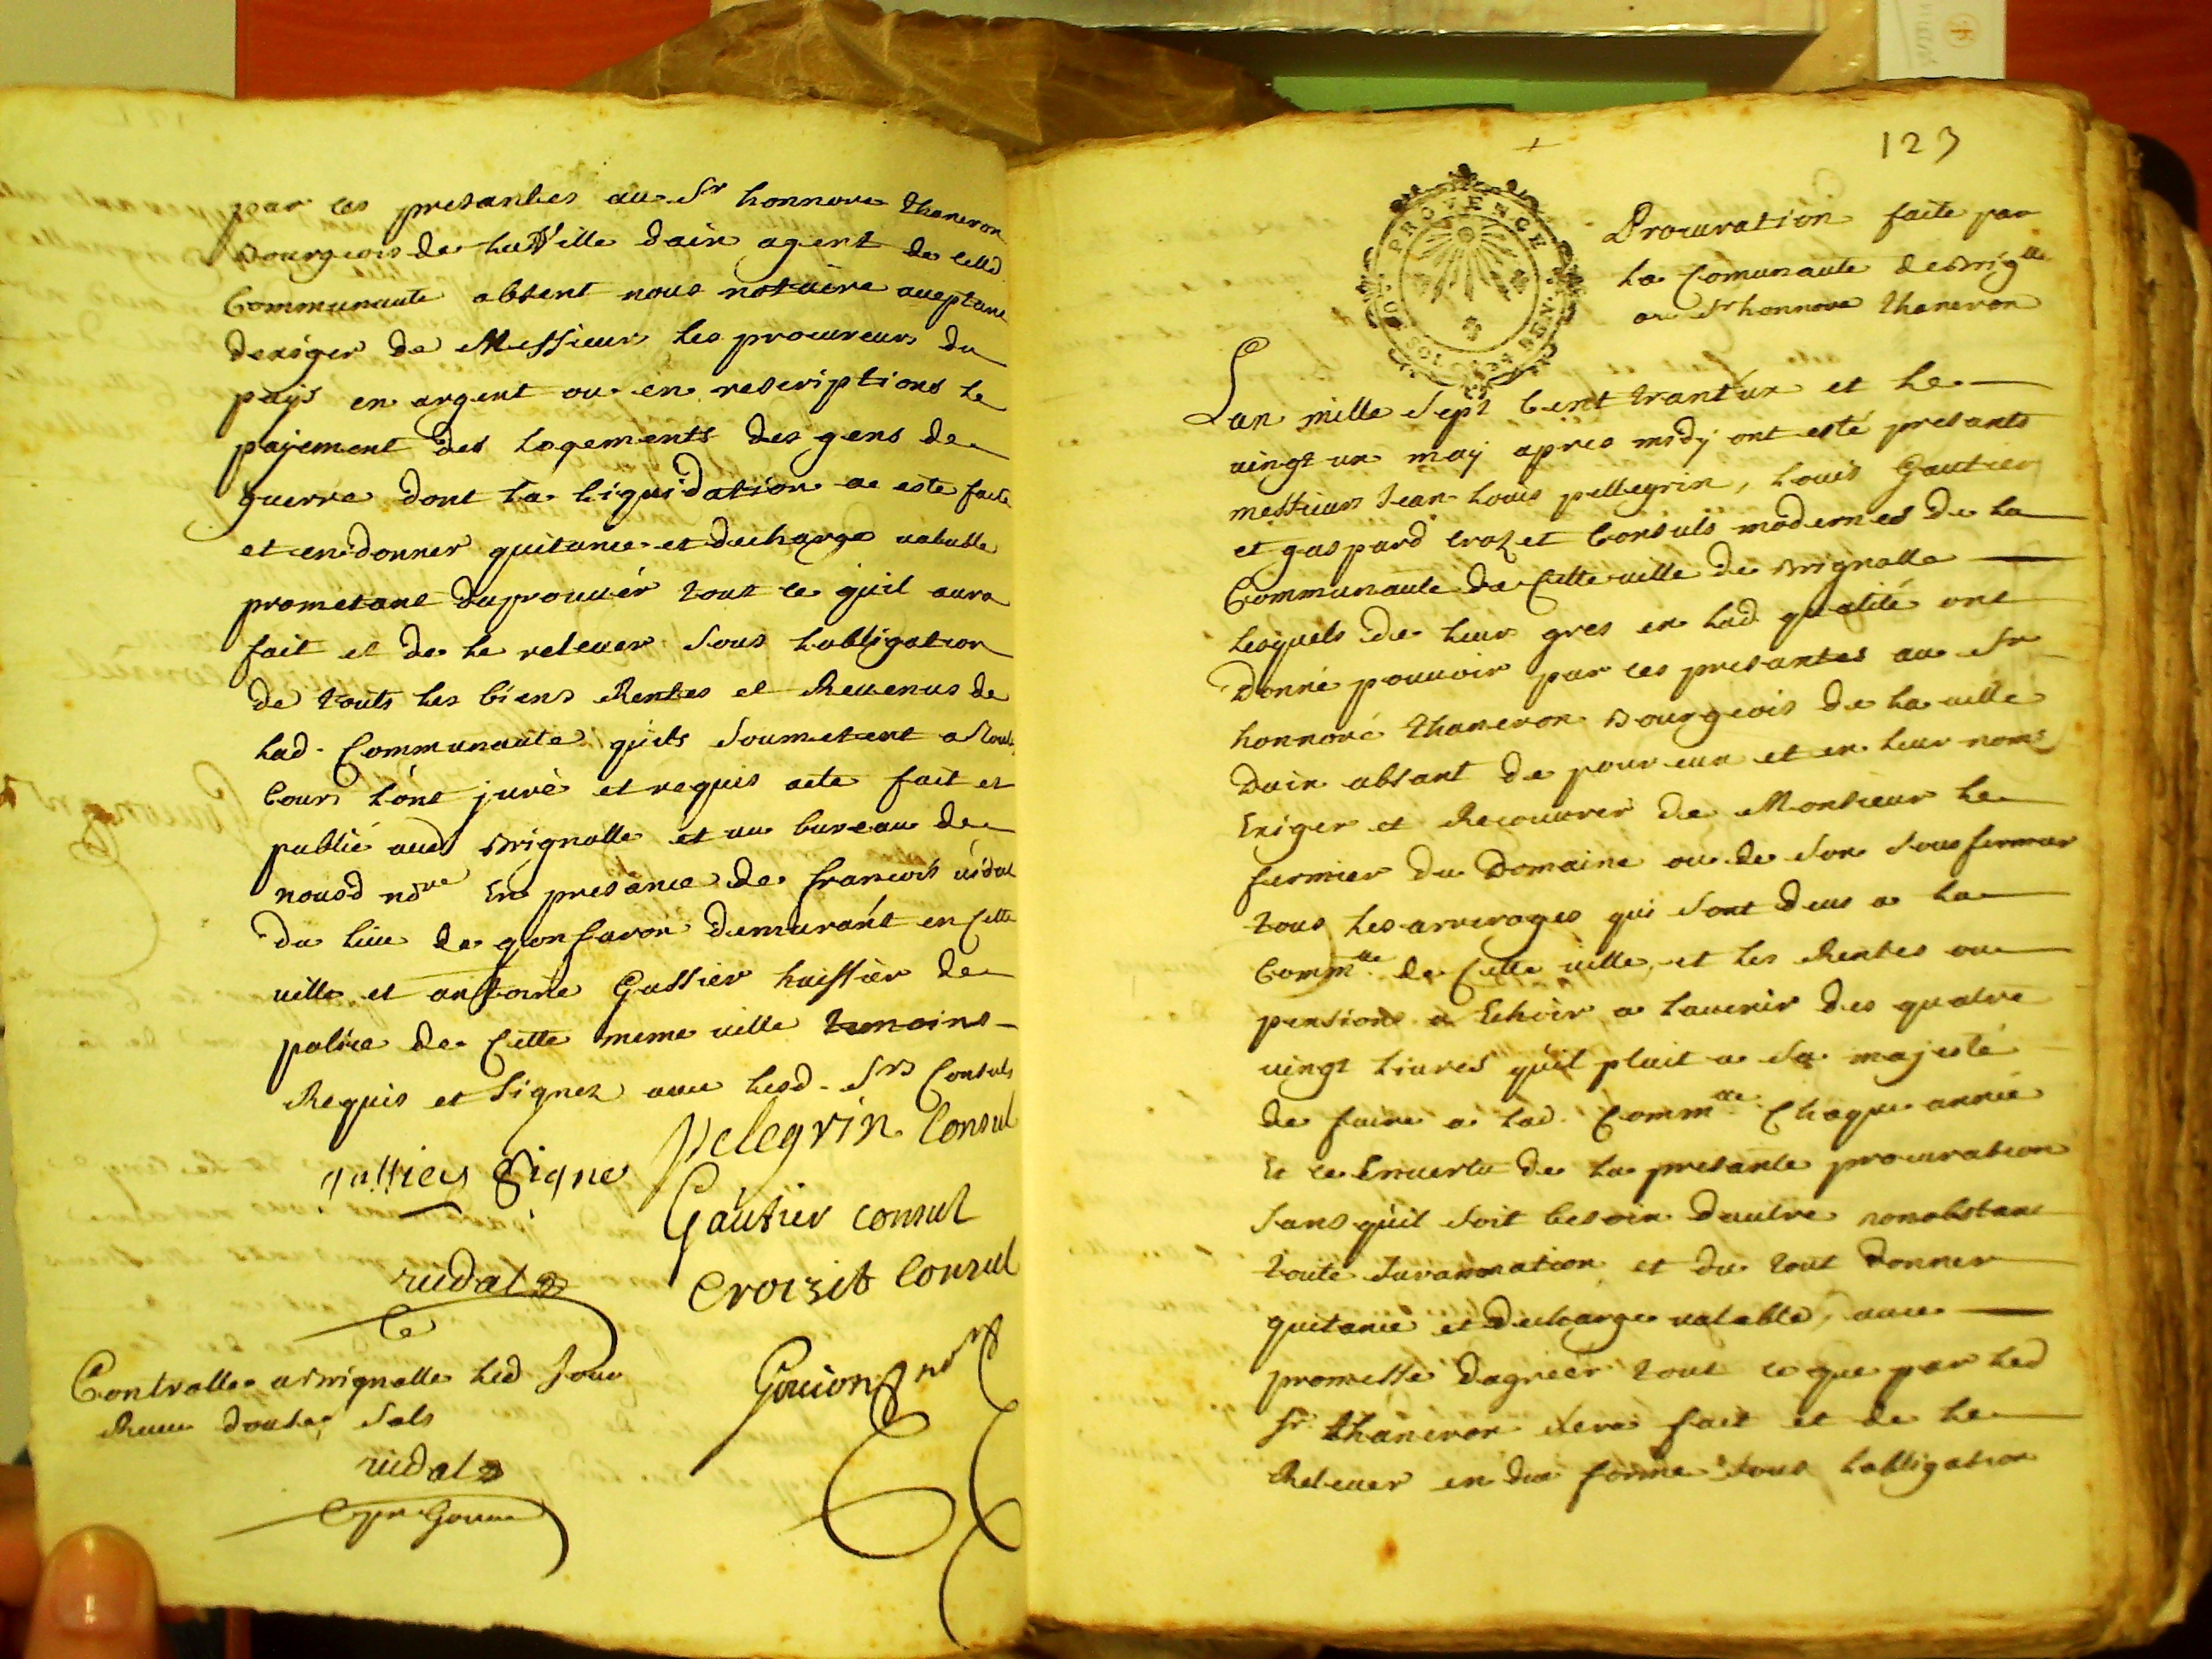 par ces presantes au Sr honnore thaneron
Bourgeois de la Ville daix agent de celle
Communaute absent nous notaire aceptant
dexiger de Messieurs les procureurs du
pays en argent ou en rescriptions le
payement des logements des gens de
guerre dont la liquidation a este faite
et en donner quitance et decharge valable
prometant daprouver tout ce quil aura
fait et de le relever sous lobligation
de touts les biens Rentes et Revenus de
lad. Communaute quils soumetent a toute
Cour lont juré et requis acte fait et
publié aud Brignolle et au bureau de
nousd nore En presance de francois vidal
du lieu de gonfaron demurant en Cette
ville et antoine Gassier huissier de
police de Cette meme ville temoins
Requis et signez avec lesd. Srs Consuls
Pelegrin Consul
gassier Signe
Gautier consul
vidal
Croizet Consul
Controlle a Brignolle led jour
Receu douze sols
Goujon nore
vidal
123
PROVENCE
Procuration faite par
la Comunaute de Briglle
au Sr honnore thaneron
Lan mille Sept Cent trantun et le
vingt un may apres midy ont esté presants
messieurs Jean Louis pellegrin, Louis Gautier
et gaspard crozet Consuls modernes de la
Communaute de Cette ville de Brignolle
lesquels de leur gres en lad qualité ont
Donné pouvoir par ces presantes au Sr
honnoré thaneron Bourgeois de la ville
Daix absant de pour eux et en leur noms
Exiger et Recouvrer de Monsieur le
fermier du Domaine ou de son sous fermier
tous les arrerages qui sont deus a la
Commte de Cette ville, et les Rentes ou
pensions a Echoir a lavenir des quatre
vingt livres quil plait a Sa majesté
de faire a lad. Commte Chaque année
Et ce En vertu de la presante procuration
sans quil soit besoin dautre nonobstant
toute surannation et du tout donner
quitance et decharge valable, avec
promesse dagreer tout ce que par led
Sr thaneron sera fait et de le
Relever en due forme sous lobligation